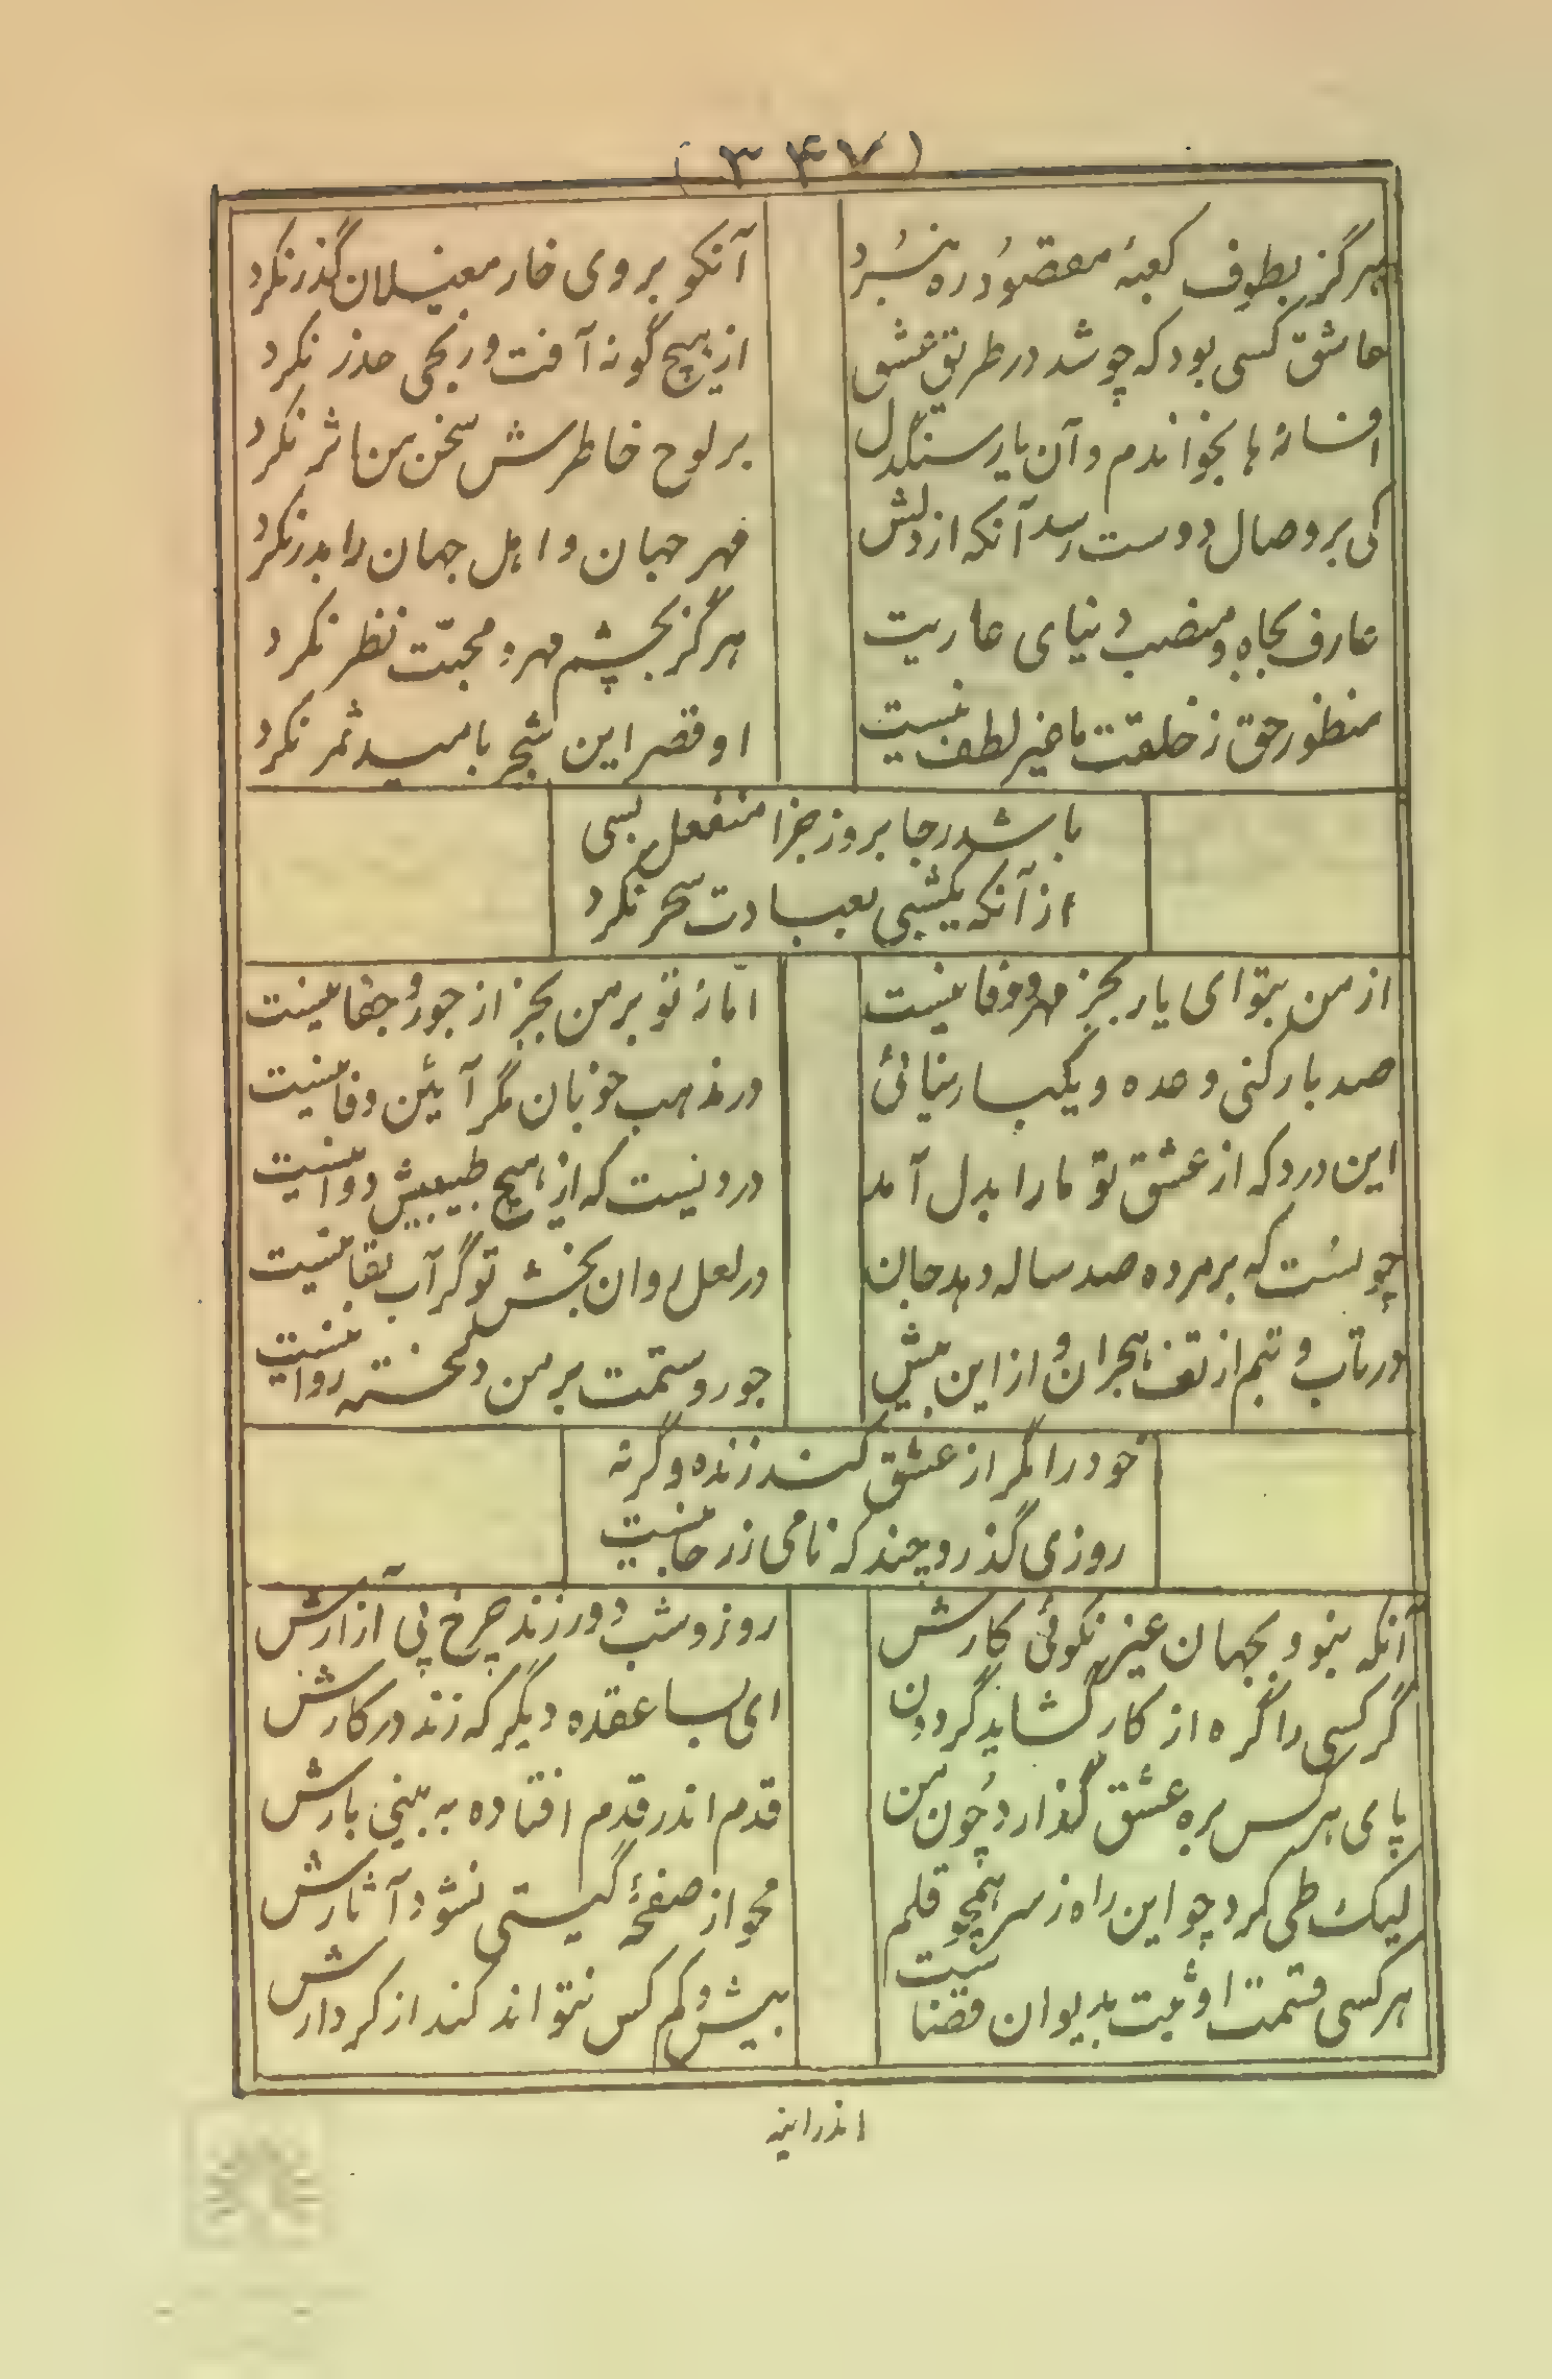 (۳۴۷)
هرگز بطوف کعبهٔ مقصود ره نبُرد
آنکو بروی خار مغیلان گذر نکرد
عاشق کسی بود که چو شد در طریق عشق
از هیچ گونه آفت و رنجی حذر نکرد
افسانه‌ها بخواندم و آن یار سنگدل
بر لوح خاطرش سخن من اثر نکرد
کی بر وصال دوست رسد آنکه از دلش
مهر جهان و اهل جهان را بدر نکرد
عارف بجاه و منصب دنیای عاریت
هرگز بچشم مهر و محبّت نظر نکرد
منظور حق ز خلقت ما غیر لطف نیست
او قصر این شجر بامید ثمر نکرد
باشد رجا بروز جزا منفعل بسی
از آنکه یکشبی بعبادت سحر نکرد
از من بتو ای یار بجز مهر و وفا نیست
امّا ز تو بر من بجز از جور و جفا نیست
صد بار کنی وعده و یکبار نیائی
در مذهب خوبان مگر آئین وفا نیست
این درد که از عشق تو ما را بدل آمد
دردیست که از هیچ طبیبیش دوا نیست
چونست که بر مرده صد ساله دهد جان
در لعل روان بخش تو گر آب بقا نیست
در تاب و تبم از تف هجران و از این بیش
جور و ستمت بر من دلخسته روا نیست
خود را مگر از عشق کند زنده وگرنه
روزی گذرد چند که نامی ز رجا نیست
آنکه ننبود بجهان غیر نکوئی کارش
روز و شب دور زند چرخ پی آزارش
گر کسی را گره از کار گشاید گردون
ای بسا عقده دیگر که زند در کارش
پای هر کس بره عشق گذارد چون من
قدم اندر قدم افتاده به بینی بارش
لیک طی کرد چو این راه ز سر همچو قلم
محو از صفحهٔ گیتی نشود آثارش
هر کسی قسمت او ثبت بدیوان قضا ست
بیش و کم کس نتواند کند از کردارش